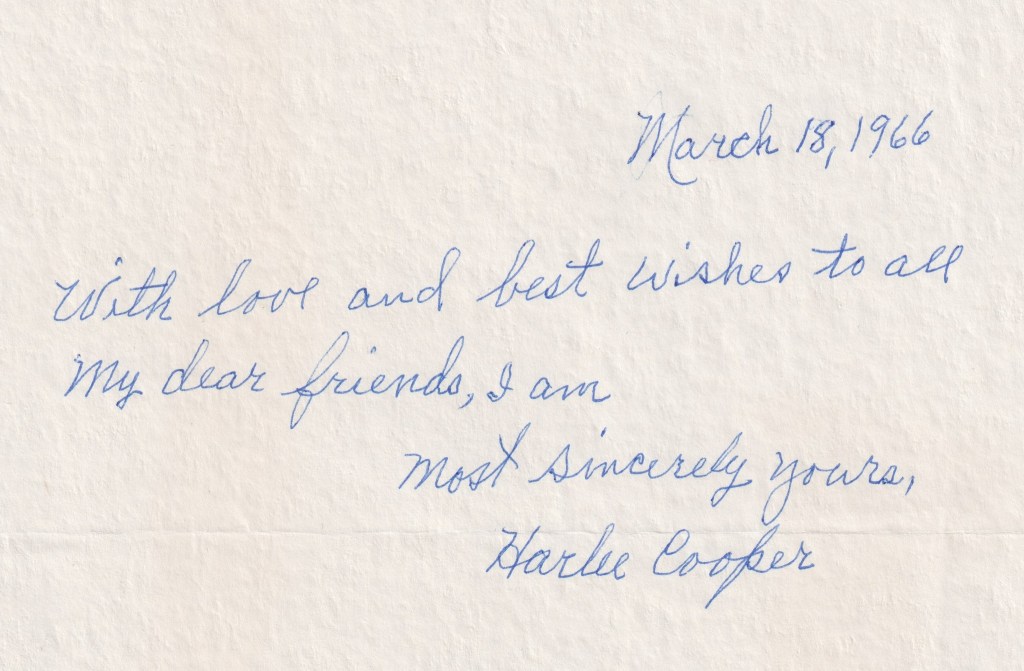 March 18, 1966
With love and best wishes to all
My dear friends, I am
Most sincerely yours,
Harlee Cooper